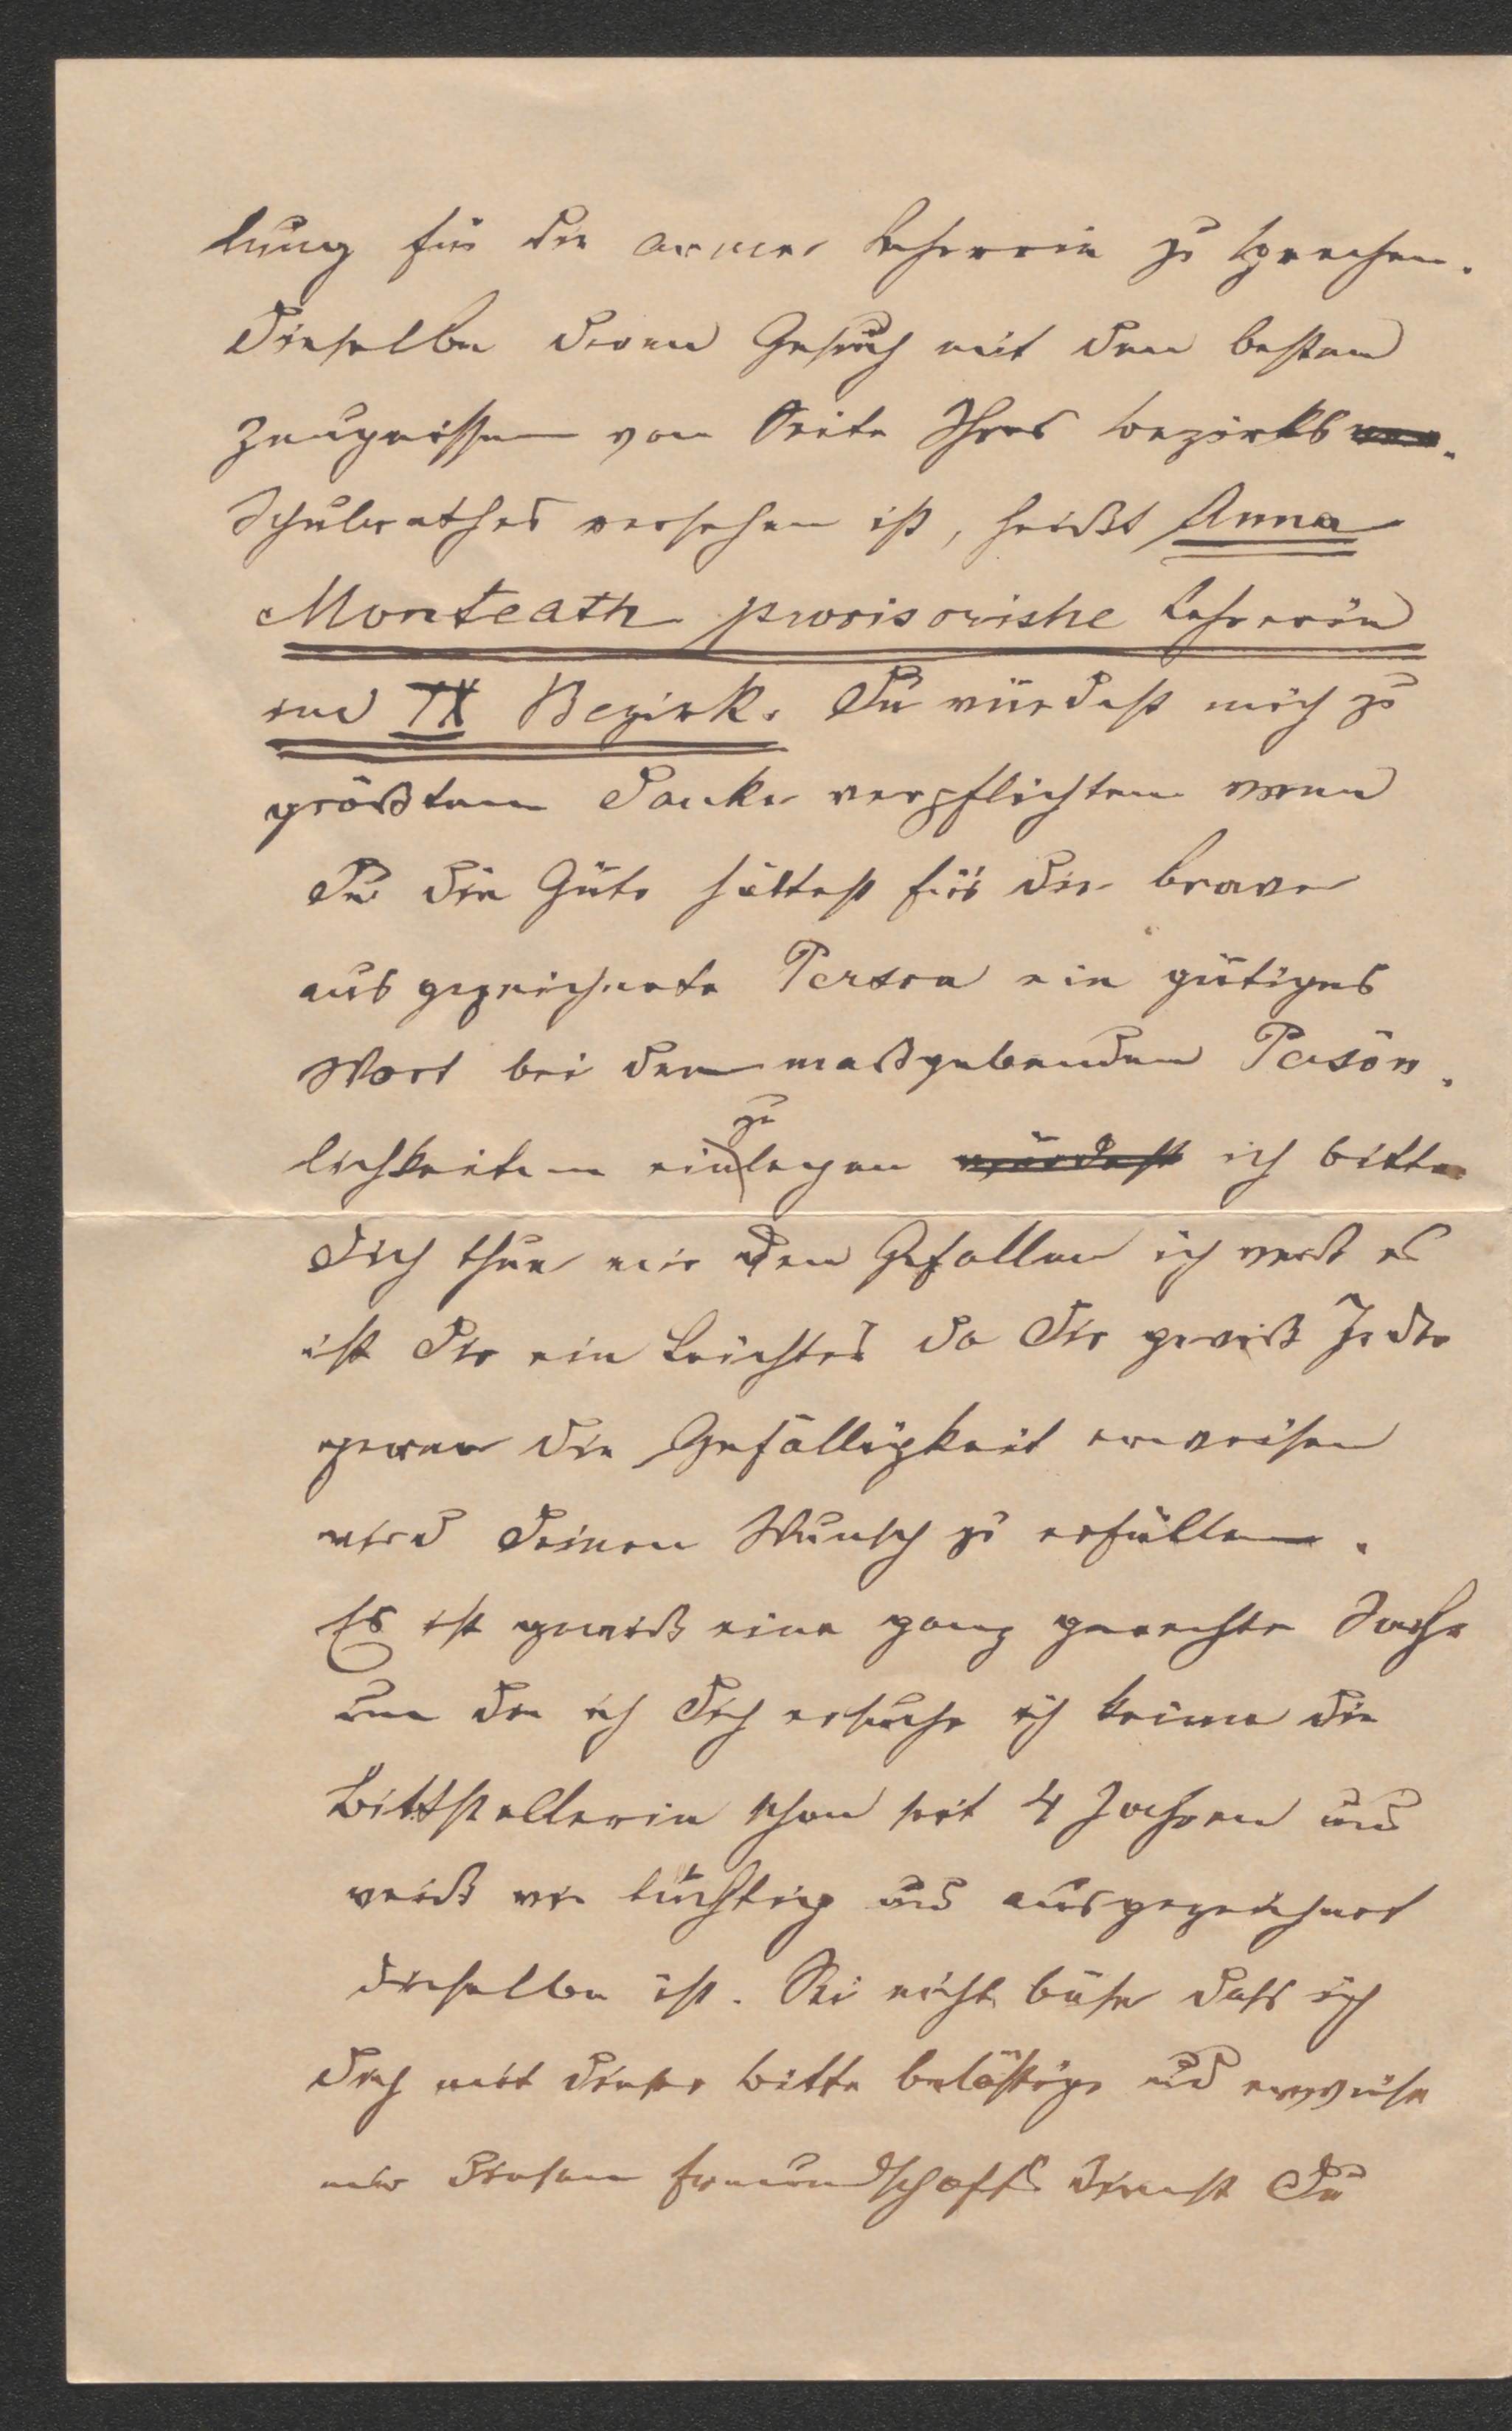 lung für die arme Lehrerin zu sprechen.
Dieselbe deren Gesuch mit den besten
Zeugnissen von Seite Ihres Bezirks
Schulrathes versehen ist, heißt Anna
Monteath provisorishe Lehrerin
im IX Bezirk. Du würdest mich zu
größtem Danke verpflichten wenn
Du die Güte hättest für die brave
ausgezeichnete Person ein gütiges
Wort bei den maßgebenden Persön
lichkeiten einzulegen würdest ich bitte
Dich thue mir den Gefallen ich weiß es
ist Dir ein Leichtes da Dir gewiß Jeder
gerne die Gefälligkeit erweisen
wird Deinen Wunsch zu erfüllen.
Es ist gewiß eine ganz gerechte Sache
um die ich Dich ersuche ich kenne die
Bittstellerin schon seit 4 Jahren und
weiß wie tüchtig und ausgezeichnet
dieselbe ist. Sei nicht böse dass ich
Dich mit dieser Bitte belästige und erweise
mir diesen Freundschafts dienst Du